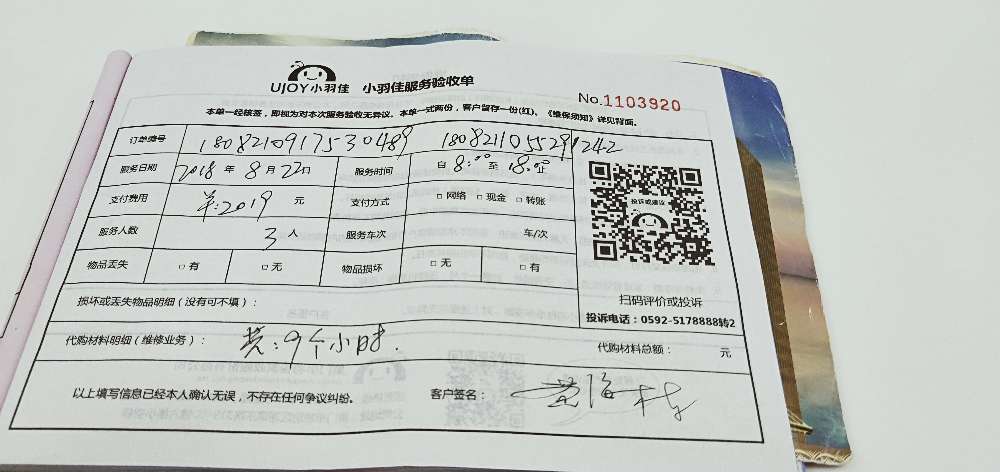 UJOY小羽佳 小羽佳服务验收单
No.1103920
本单一经核签，即视为对本次服务验收无异议。本单一式两份，客户留存一份(红)，《维保须知》详见背面。
订单编号 1808210917530489 1808211055291242
服务日期 2018 年 8 月 22 日 服务时间 自 8:00 至 18:00 止
支付费用 单:2019 元 支付方式 □ 网络 □ 现金 □ 转账
投诉或建议
服务人数 3 人 服务车次 车/次
物品丢失 □ 有 □ 无 物品损坏 □ 无 □ 有
扫码评价或投诉
损坏或丢失物品明细（没有可不填）：
投诉电话：0592-5178888转2
代购材料明细（维修业务）： 共:9个小时. 代购材料总额： 元
以上填写信息已经本人确认无误，不存在任何争议纠纷。 客户签名：